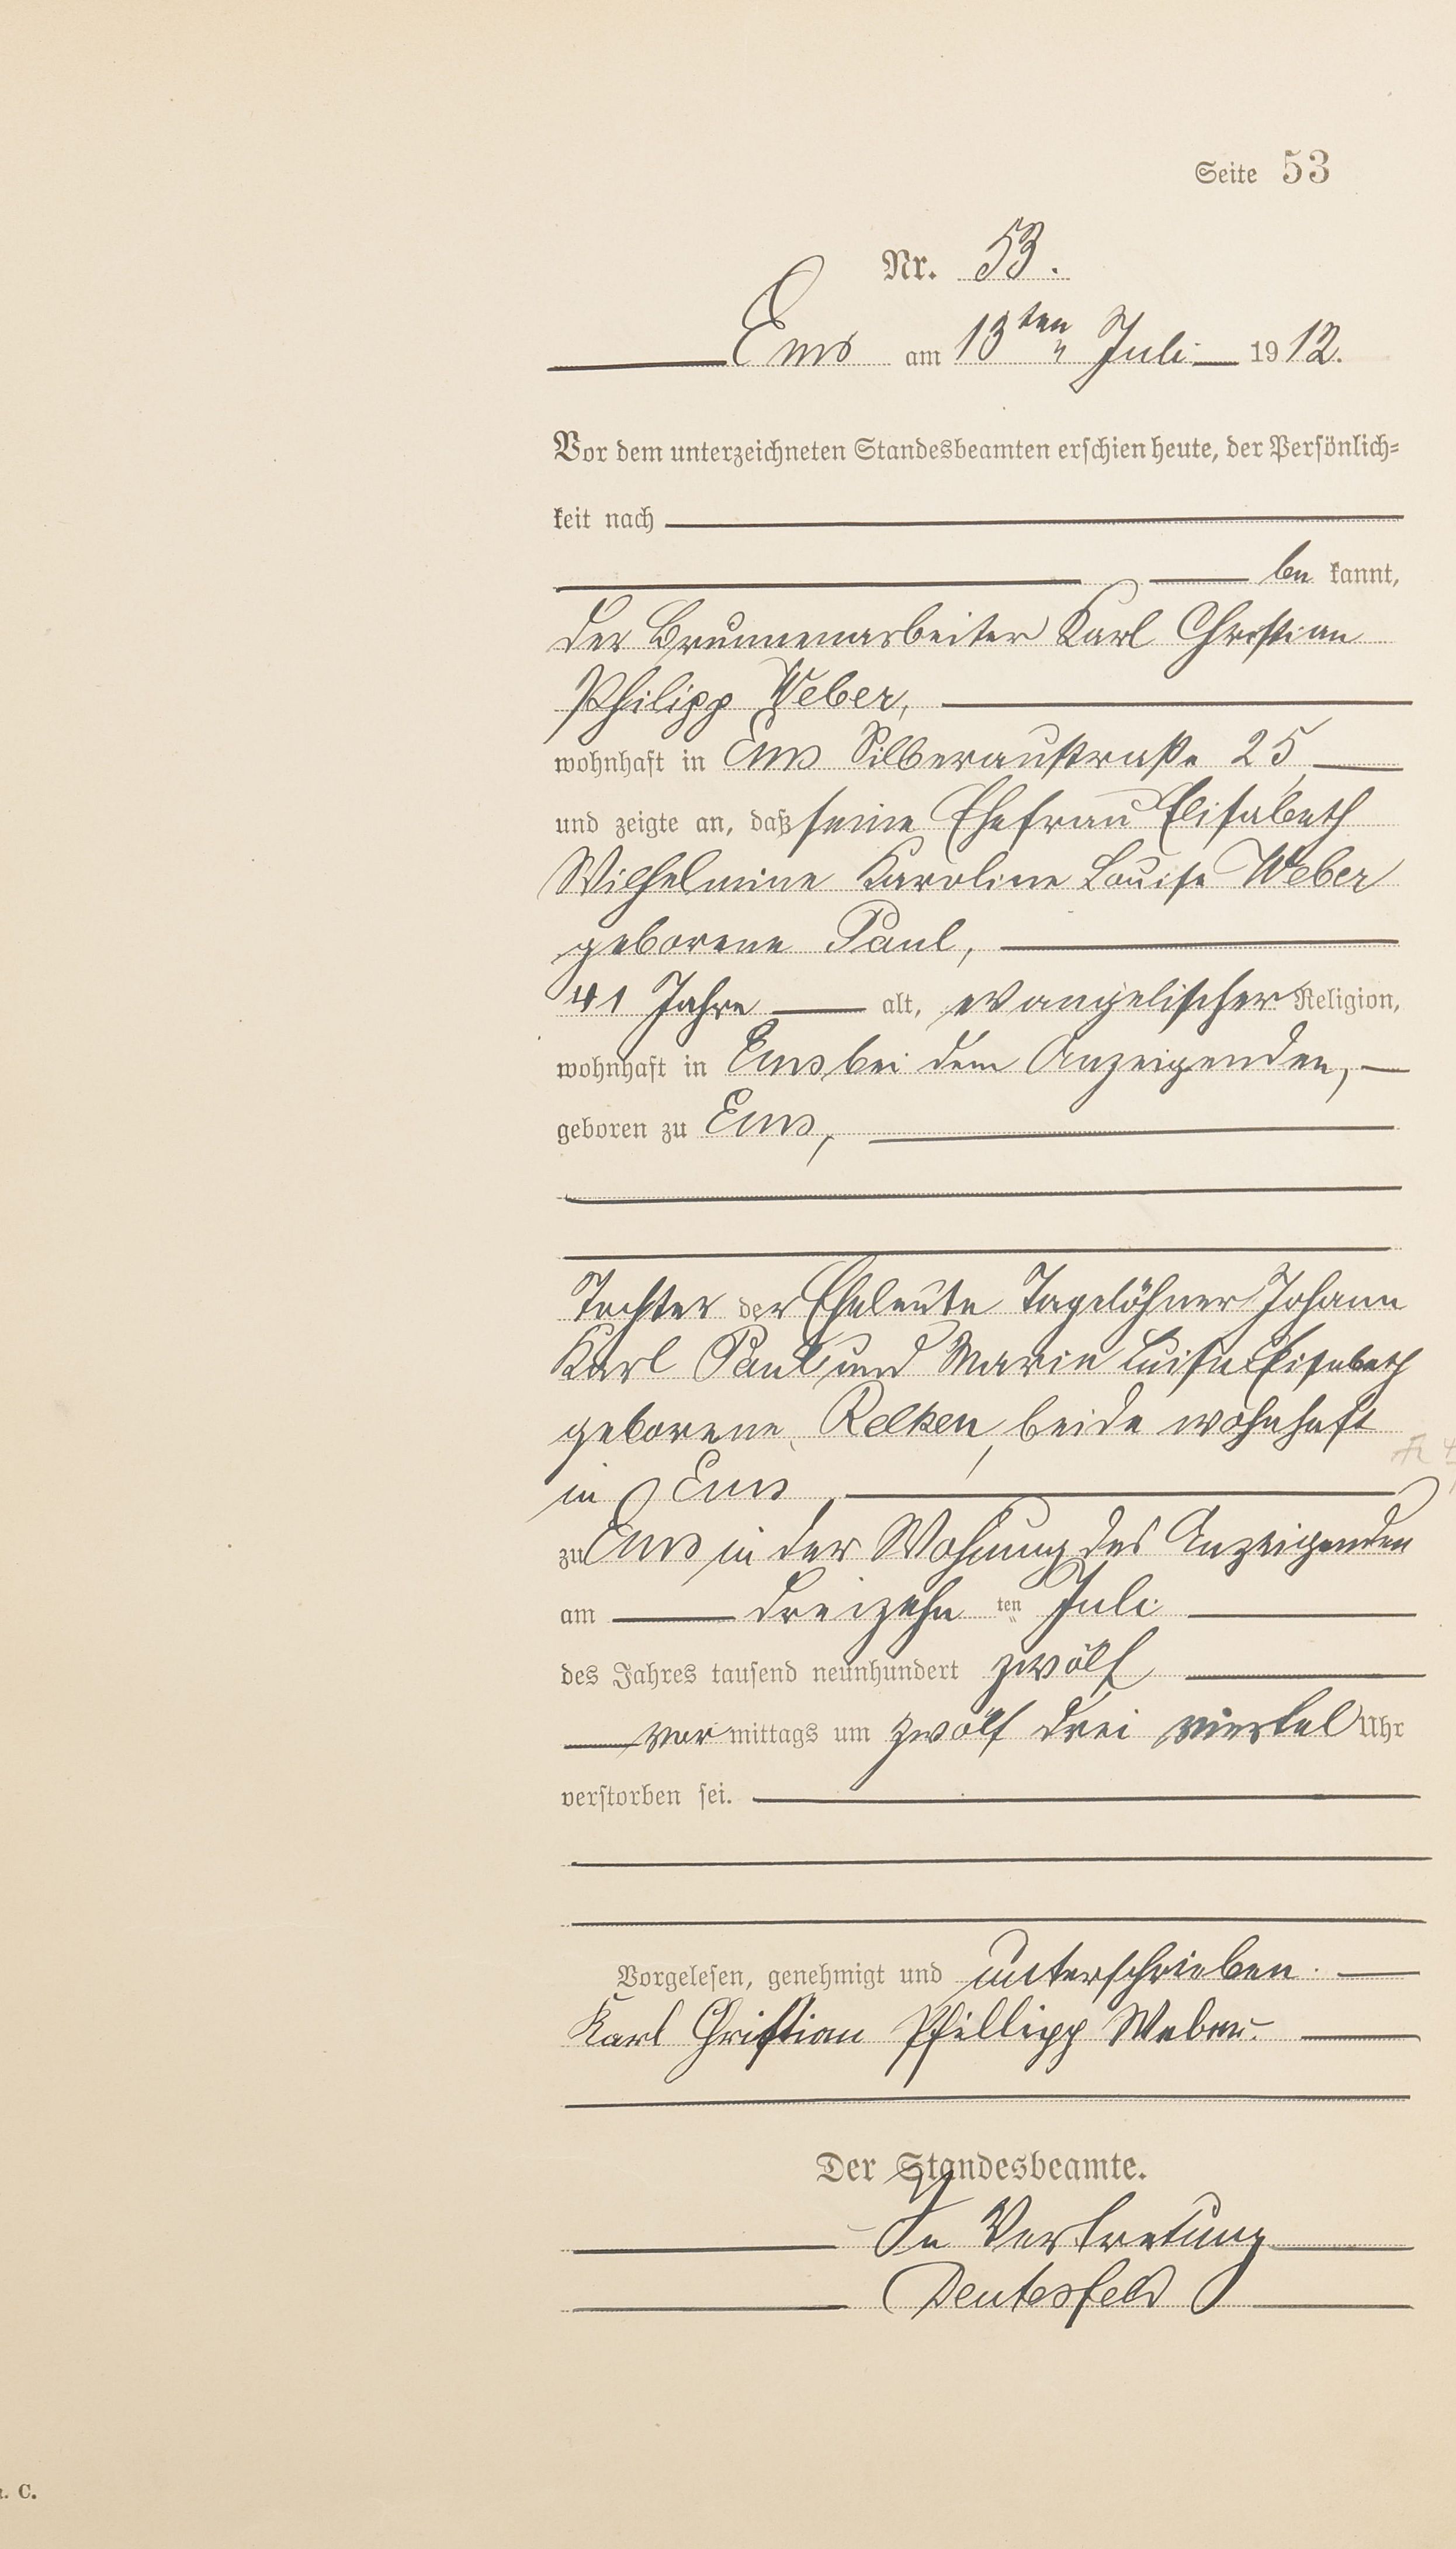 Seite 53
Nr. 53.
Ems am 13ten Juli 1912.
Vor dem unterzeichneten Standesbeamten erschien heute, der Persönlich-
keit nach
be kannt,
der Brunnenarbeiter Karl Christian
Philipp Weber,
wohnhaft in Ems Silberaustraße 25
und zeigte an, daß seine Ehefrau Elisabeth
Wilhelmine Karoline Louise Weber
geborene Paul,
41 Jahre alt, evangelischer Religion,
wohnhaft in Ems bei dem Anzeigenden,
geboren zu Ems,
Tochter der Eheleute Tagelöhner Johann
Karl Paul und Marie Luise Elisabeth
geborene, beide wohnhaft
in Ems
zu Ems in der Wohnung des Anzeigenden
am dreizehn ten Juli
des Jahres tausend neunhundert zwölf
vor mittags um zwölf drei viertel Uhr
verstorben sei.
Vorgelesen, genehmigt und unterschrieben.
Karl Christian Phillipp Weber.
Der Standesbeamte.
In Vertretung
r. C.